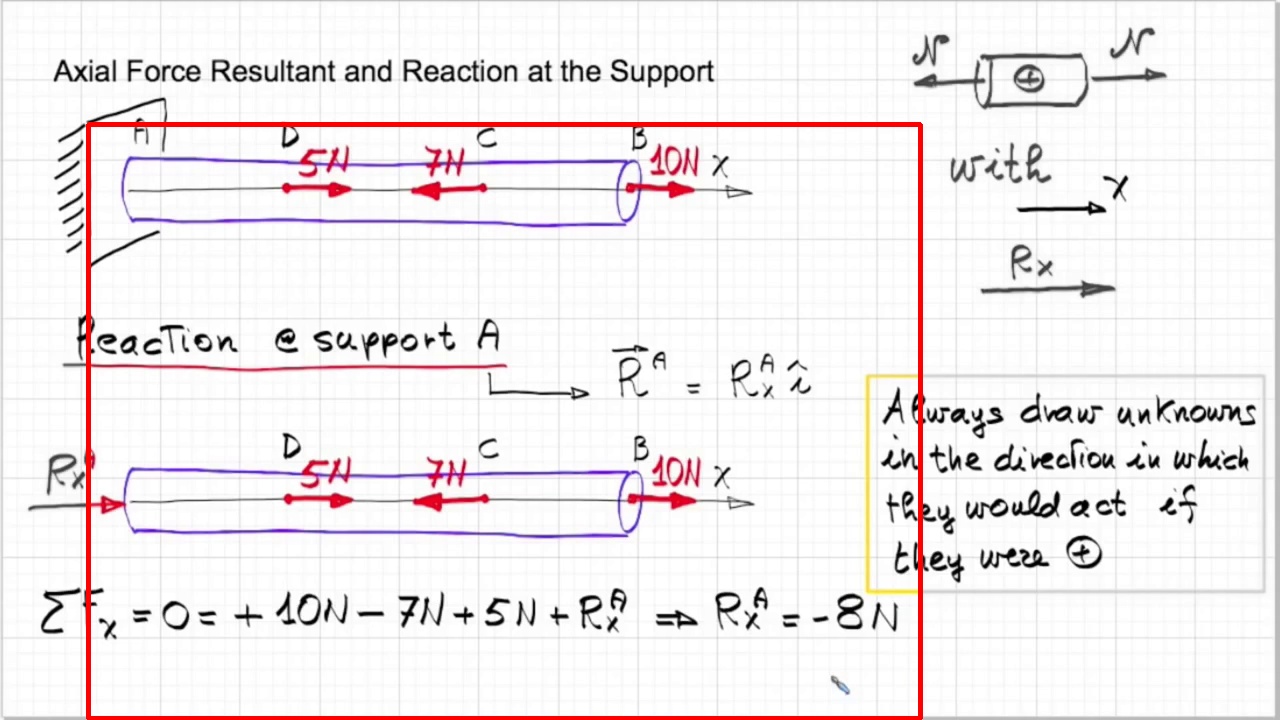 Axial Force Resultant and Reaction at the Support
N N
⊕
A D C B
5N 7N 10N x
with
x
Rx
Reaction @ support A
R^A = Rx^A î
Always draw unknowns
in the direction in which
they would act if
they were ⊕
D C B
Rx^A 5N 7N 10N x
ΣFx = 0 = + 10N - 7N + 5N + Rx^A ⇒ Rx^A = -8N